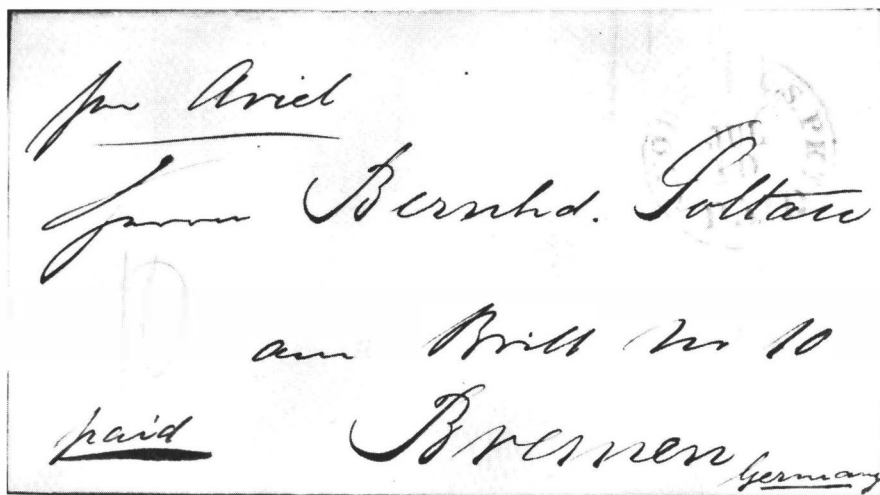 per Ariel
Herrn Bernhd. Poltau
am Brill No 10
paid Bremen
Germany